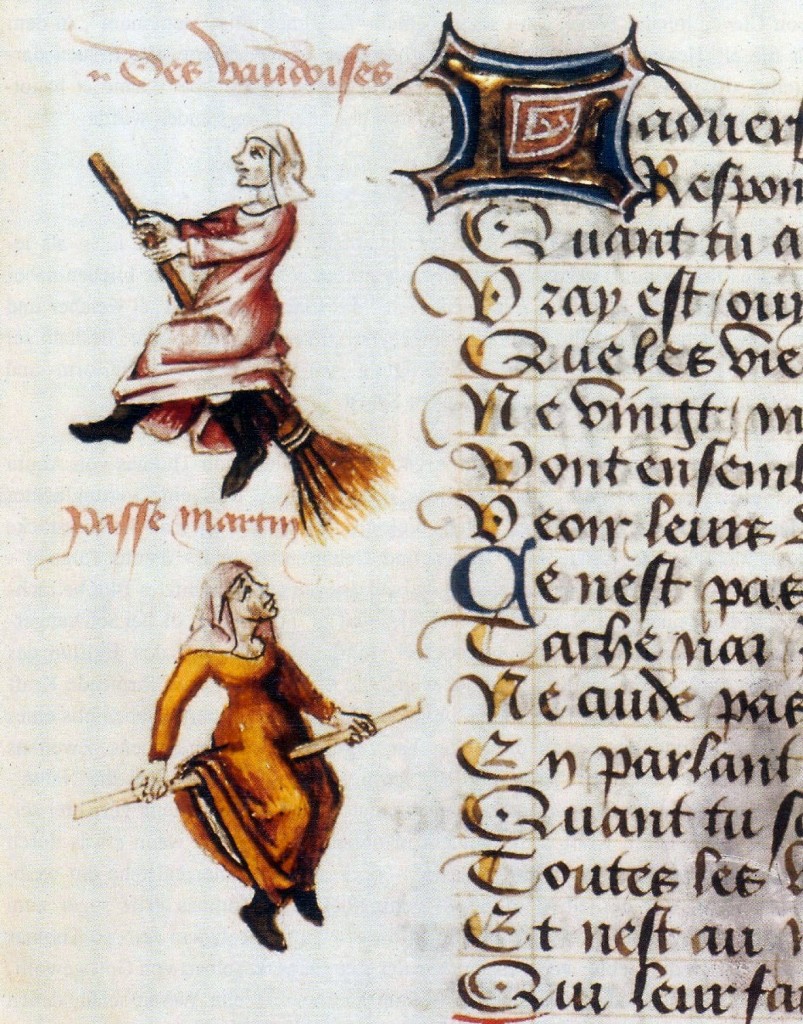 Des vaudoises
passe martin
Ladvers
Respon
Quant tu a
Vray est ouy
Que les vie
Ne vingt m
Vont ensemb
Veoir leurs
Ce nest pas
Tache par
Ne cuide pas
En parlant
Quant tu so
Toutes les v
Et nest au
Qui leur fa